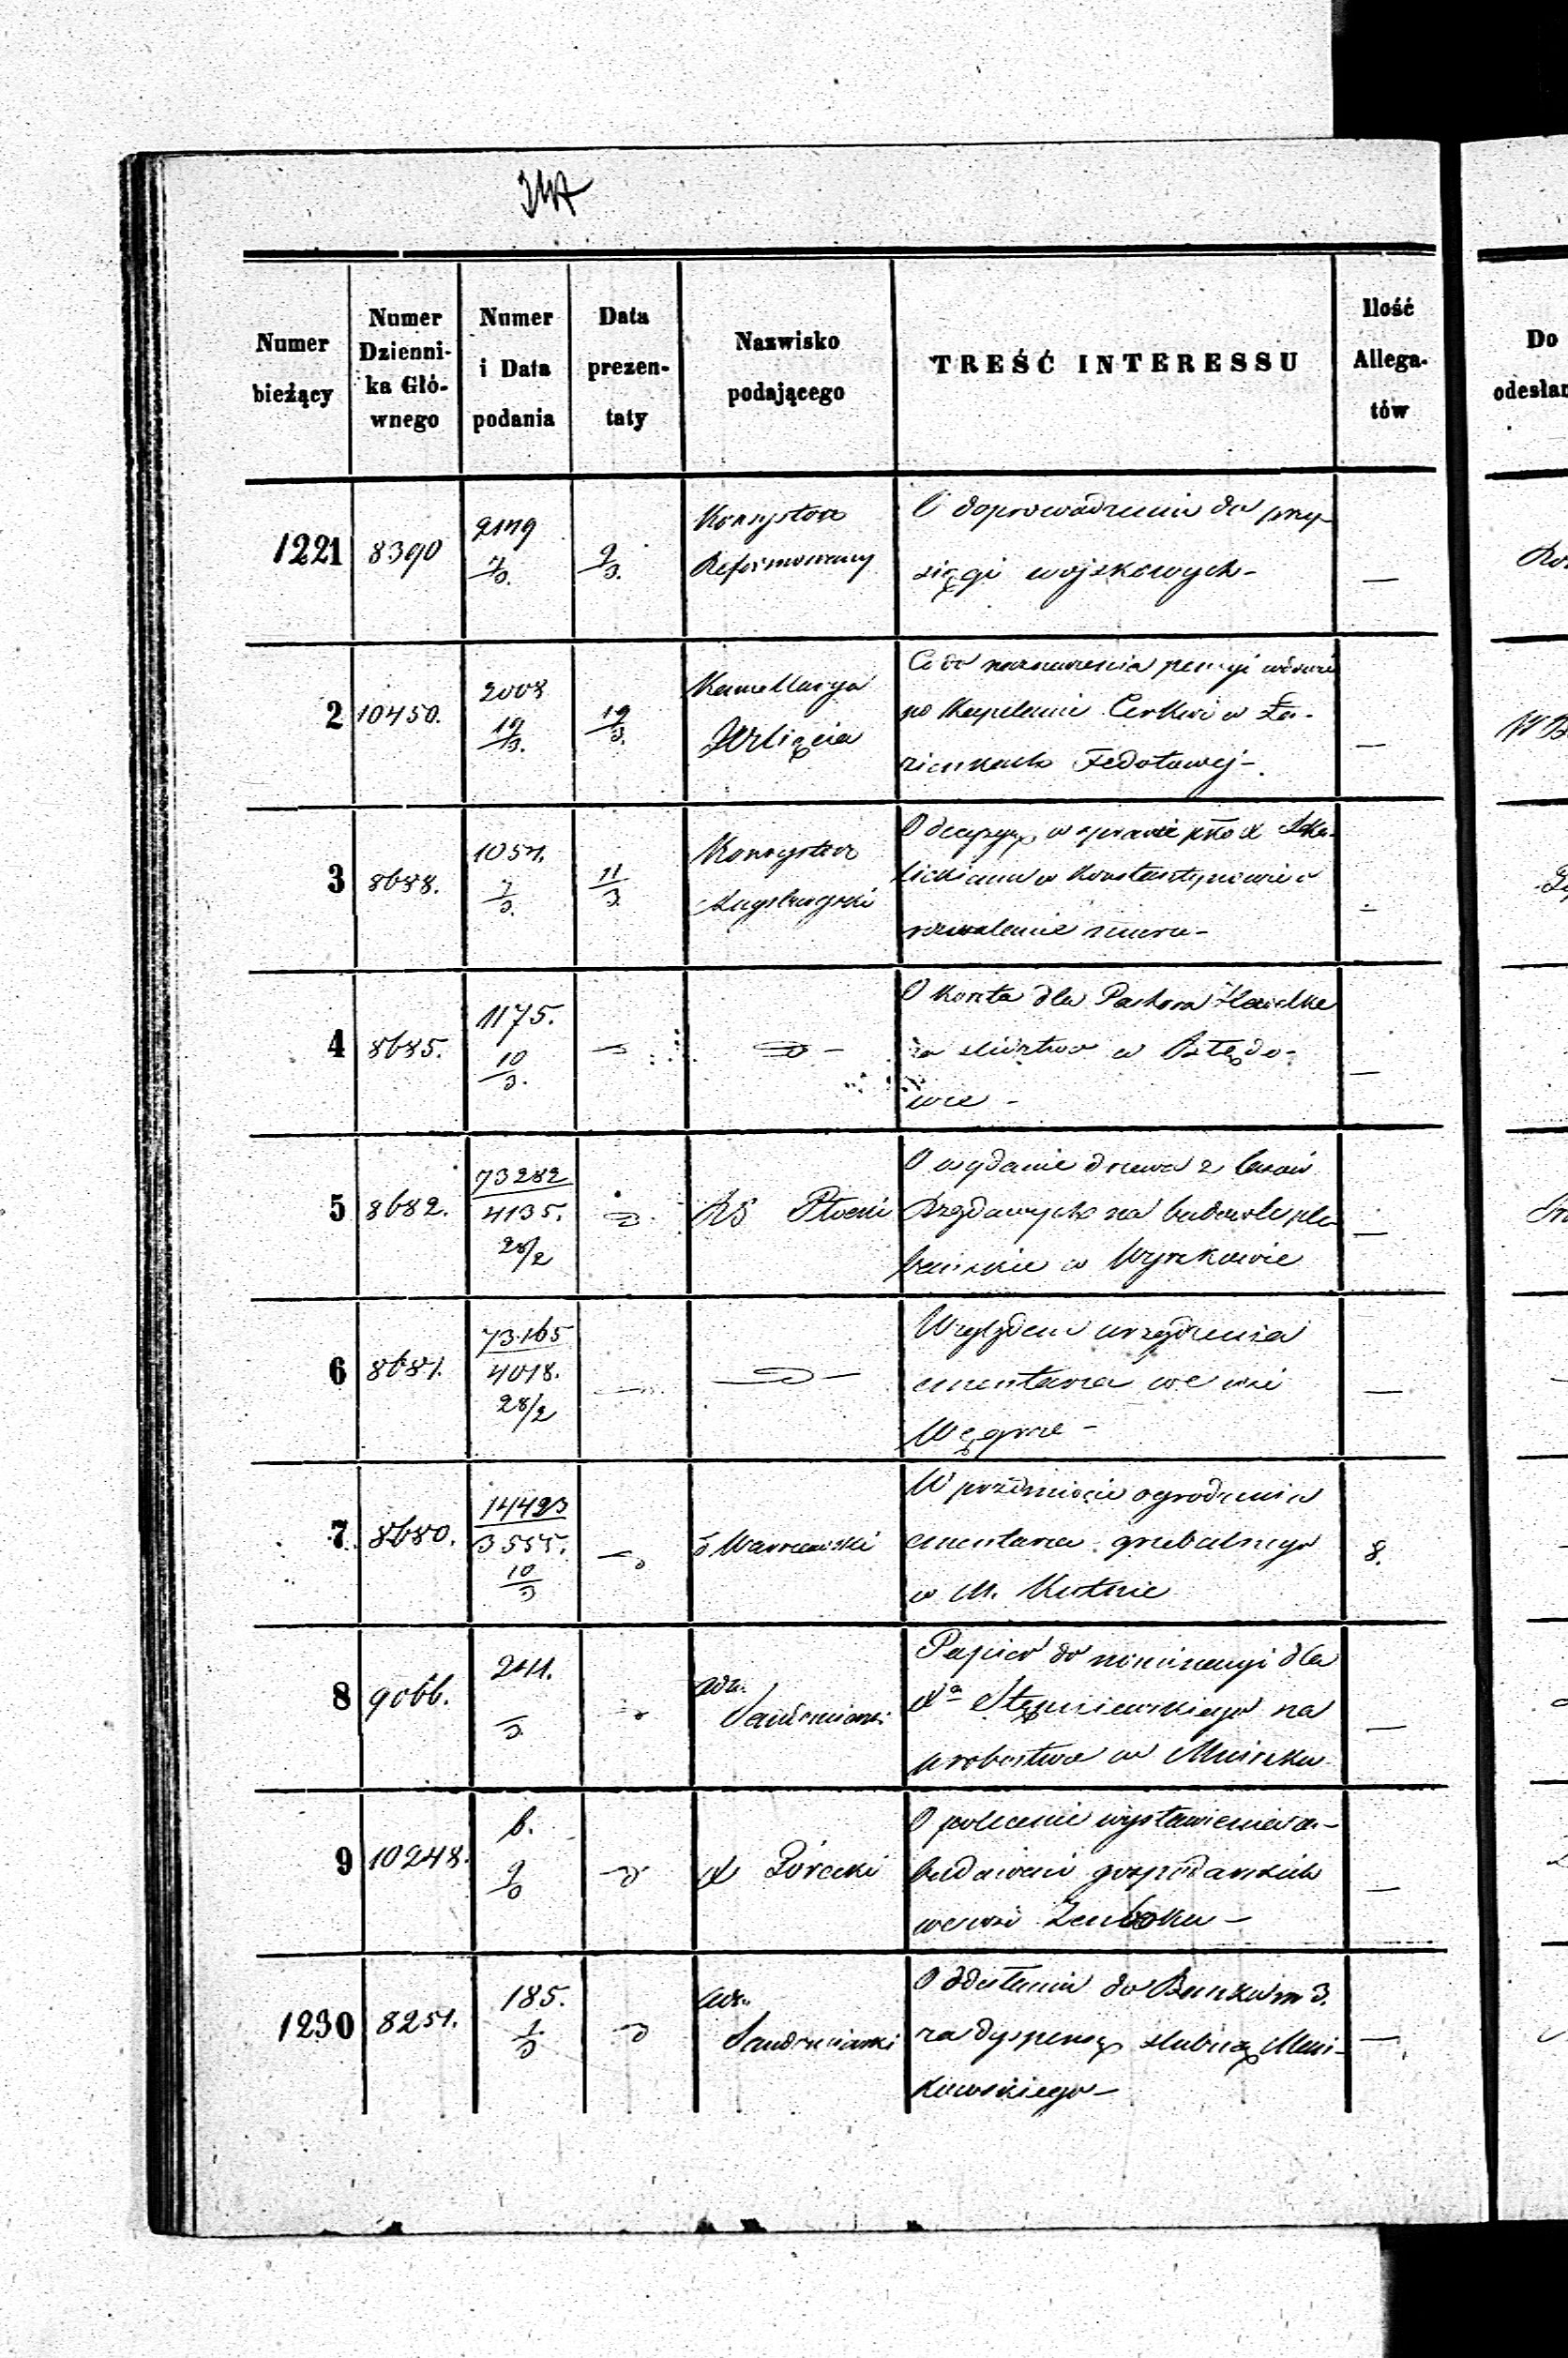 Numer bieżący
Numer Dzienni-ka Głó-wnego
Numer i Data podania
Data prezen-taty
Nazwisko podającego
TREŚĆ INTERESSU
Ilość Allega-tów
Do odesłan
1221 8390 7/3. 9/3. Konsystorz Reformowany
O doprowadzenie do przy-
sięgi wojskowych -
2 10450. 2008 19/3. 19/3. Kancellarya
Co do naznaczenia pensyi wdowie
po Kapelanie Cerkwi w Ła-
zienkach Fedotowej -
3 8688. 1054. 7/3. 11/3 Konsystorz Augsburgski
O decyzyę w sprawie
w Konstantynowie o
rozwalenie muru -
4 8685. 1175. 10/3.
O koszta dla Pastora
za śledztwo w Błędo-
wie -
5 8682. 73282 4135. 28/2 RG Płocki
O wydanie drzewa z lasów
Rządowych na budowle ple-
bańskie w Wyszkowie
6 8681. 73165 4018. 28/2
Względem urządzenia
cmentarza we wsi
Węgrze -
7 8680. 14423 3555. 10/3 Warszawski
W przedmiocie ogrodzenia
cmentarza grzebalnego
w M. Kutnie
8.
8 9066. 241. /3. Adm. Sandomierski
Papier do nominacyi dla
Xa Stępniewskiego na
probostwo w
9 10248. 6. 9/3 X Górecki
O polecenie wystawienia za-
budowań gospodarskich
we wsi
1230 8251. 185. 1/3 Adm. Sandomierski
O odesłanie do Banku
za dyspensę ślubną
kowskiego -